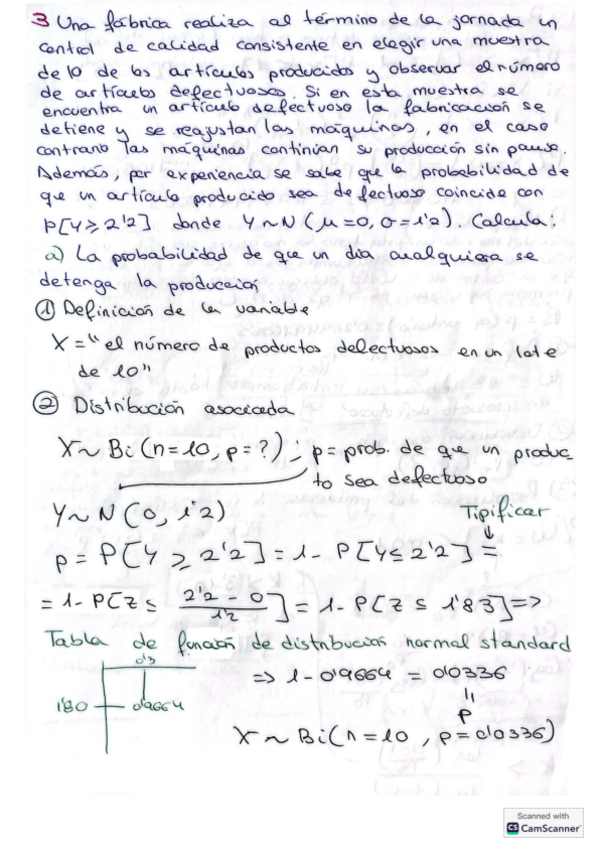 3 Una fábrica realiza al término de la jornada un
control de calidad consistente en elegir una muestra
de 10 de los artículos producidos y observar el número
de artículos defectuosos. Si en esta muestra se
encuentra un artículo defectuoso la fabricación se
detiene y se reajustan las máquinas, en el caso
contrario las máquinas continúan su producción sin pausa.
Además, por experiencia se sabe que la probabilidad de
que un artículo producido sea defectuoso coincide con
P[Y ≥ 2'2] donde Y ~ N (μ = 0, σ = 1'2). Calcula:
a) La probabilidad de que un día cualquiera se
detenga la producción
① Definición de la variable
X = "el número de productos defectuosos en un lote
de 10"
② Distribución asociada
X ~ Bi (n = 10, p = ?) ; p = prob. de que un produc-
to sea defectuoso
Y ~ N (0, 1'2)
Tipificar
p = P[Y ≥ 2'2] = 1 - P[Y ≤ 2'2] =
= 1 - P[Z ≤ (2'2 - 0)/1'2] = 1 - P[Z ≤ 1'83] =>
Tabla de función de distribución normal standard
0'3
1'80 0'9664
=> 1 - 0'9664 = 0'0336
"
p
X ~ Bi (n = 10, p = 0'0336)
Scanned with
CS CamScanner